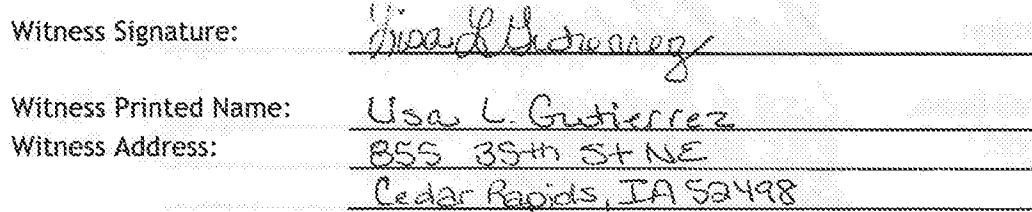 Witness Signature: Lisa L Gutierrez
Witness Printed Name: Lisa L. Gutierrez
Witness Address: 855 35th St NE
Cedar Rapids, IA 52498